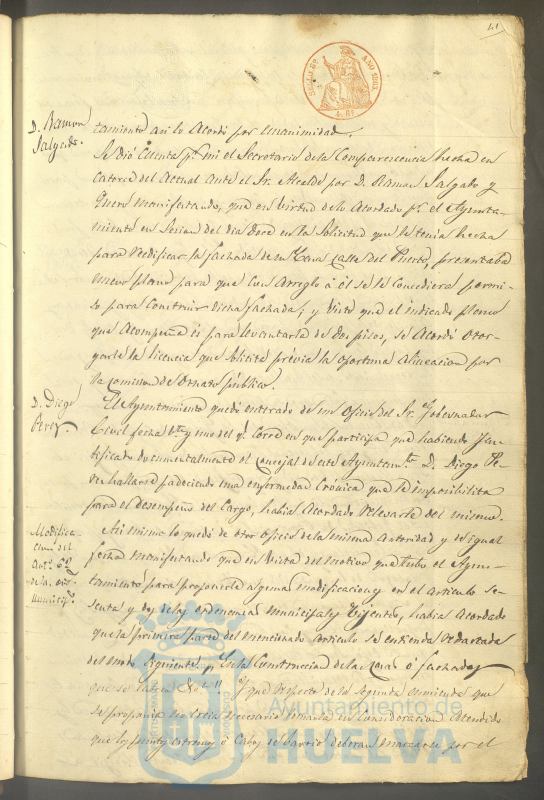 41
SELLO 9º AÑO 1863
4 Rs
D. Ramon
Salgado.
tamiento asi lo acordó por unanimidad.
Se dió cuenta pr. mi el Secretario de la Comparecencia hecha en
catorce del actual ante el Sr. Alcalde por D. Ramon Salgado y
manifestando, que en virtud de lo acordado pr. el Ayunta-
miento en Sesion del dia doce en la Solicitud que le tenia hecha
para redificar la fachada de su casa calle del Puerto, presentaba
nuevo plano para que con arreglo á él se le concediera permi-
so para construir dicha fachada; y visto que el indicado plano
que acompaña és para levantarla de dos pisos, se acordó otor-
garle la licencia que solicita prévia la oportuna alineacion por
la comision de Ornato público.
D. Diego
Perez
El Ayuntamiento quedó enterado de un oficio del Sr. Gobernador
Civil fecha vte. y uno del qe. corre en que participa que habiendo jus-
tificado documentalmente el concejal de este Ayuntamto. D. Diego Pe-
rez hallarse padeciendo una enfermedad crónica que le imposibilita
para el desempeño del cargo, habia acordado relevarle del mismo.
Modifica-
cion del
Artº 62
de las
municips.
Asi mismo lo quedó de otro oficio de la misma autoridad y de igual
fecha manifestando que en vista del motivo que tubo el Ayun-
tamiento para proponerle algunas modificaciones en el articulo se-
senta y dos de las ordenanzas municipales vigentes, habia acordado
que la primera parte del mencionado articulo se entienda redactada
del modo siguiente: En la construccion de las casas ó fachadas
que se labren &a. Y que respecto de la segunda enmienda que
se proponia no creia necesario tomarla en consideracion atendido
que los puntos estremos ó cabos de barrio deberan marcarse por el
Ayuntamiento de
HUELVA